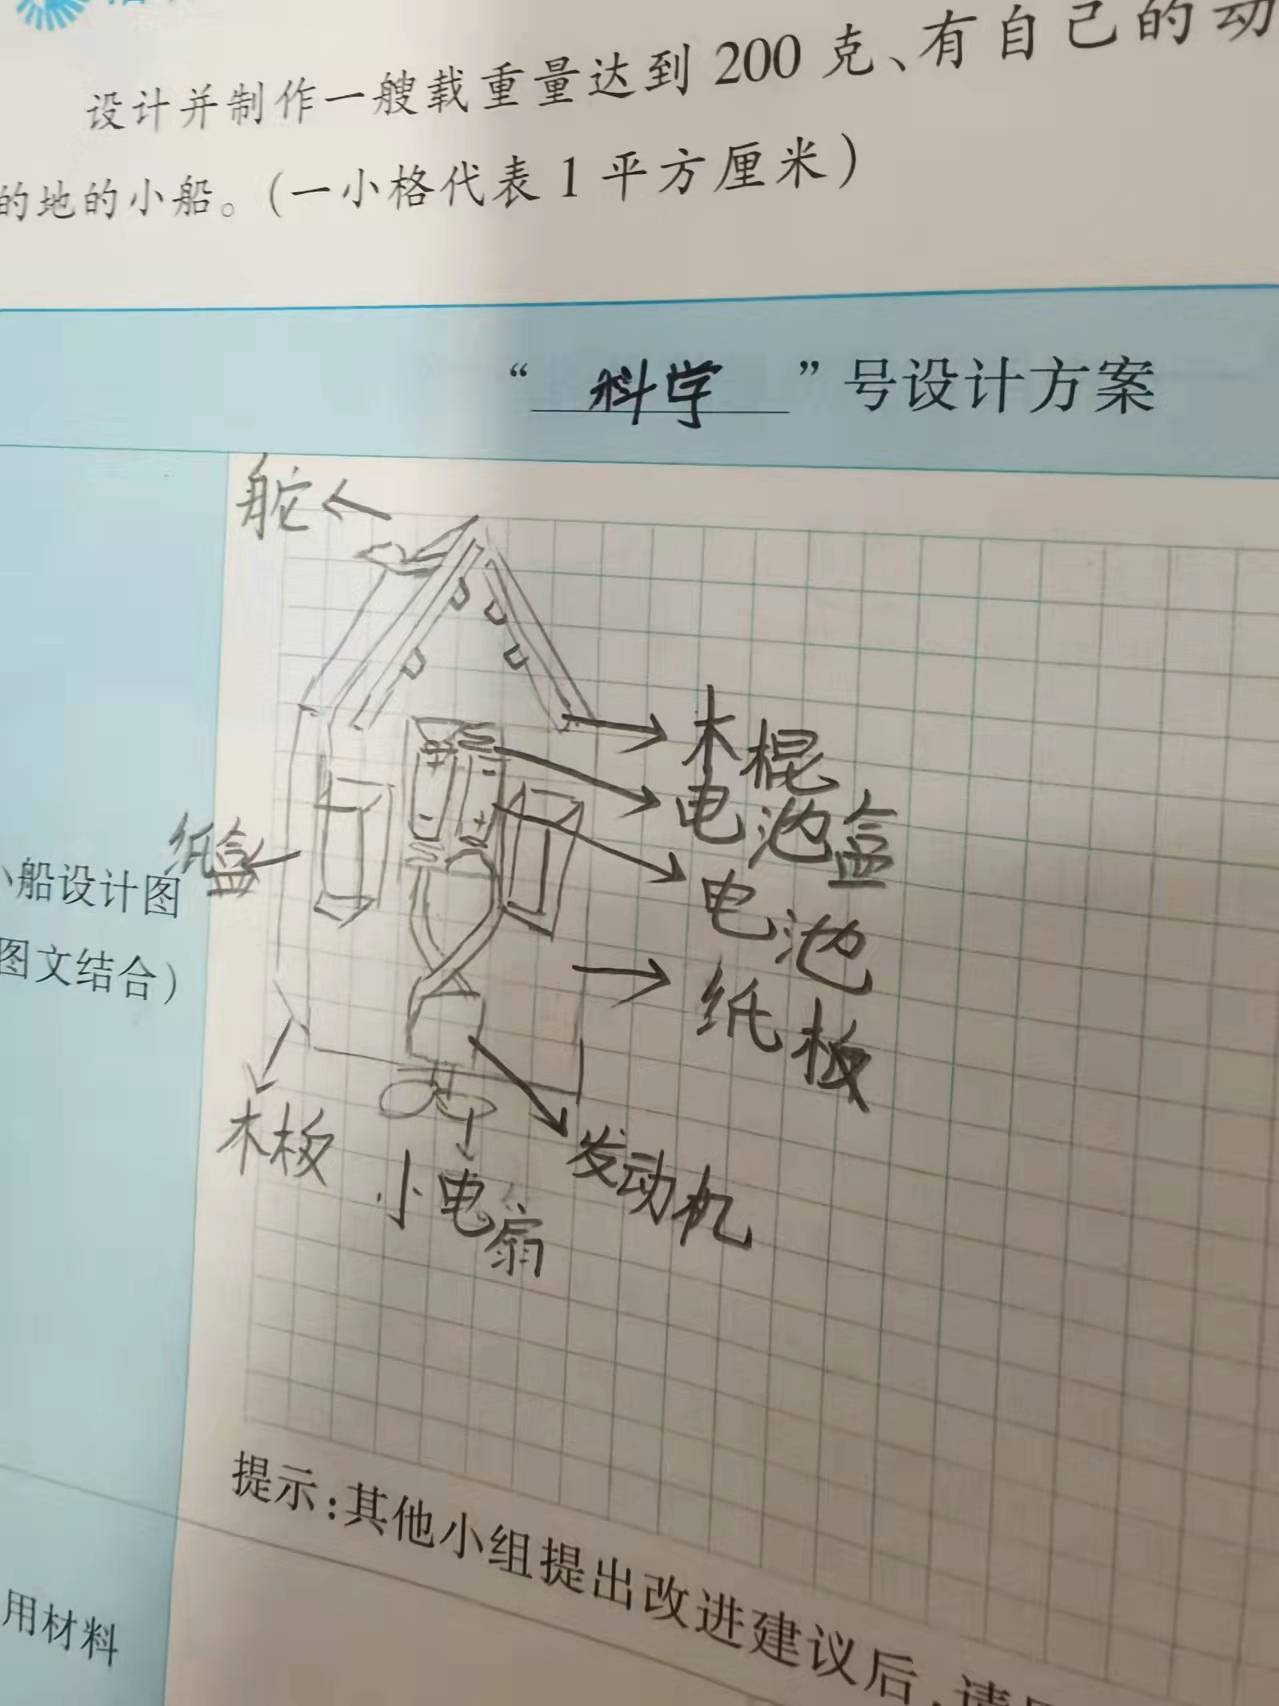 设计并制作一艘载重量达到 200 克、有自己的动
的地的小船。(一小格代表 1 平方厘米)
“科学”号设计方案
舵
木棍
电池盒
纸盒
小船设计图
电池
(图文结合)
纸板
木板
发动机
小电扇
提示:其他小组提出改进建议后,请
用材料